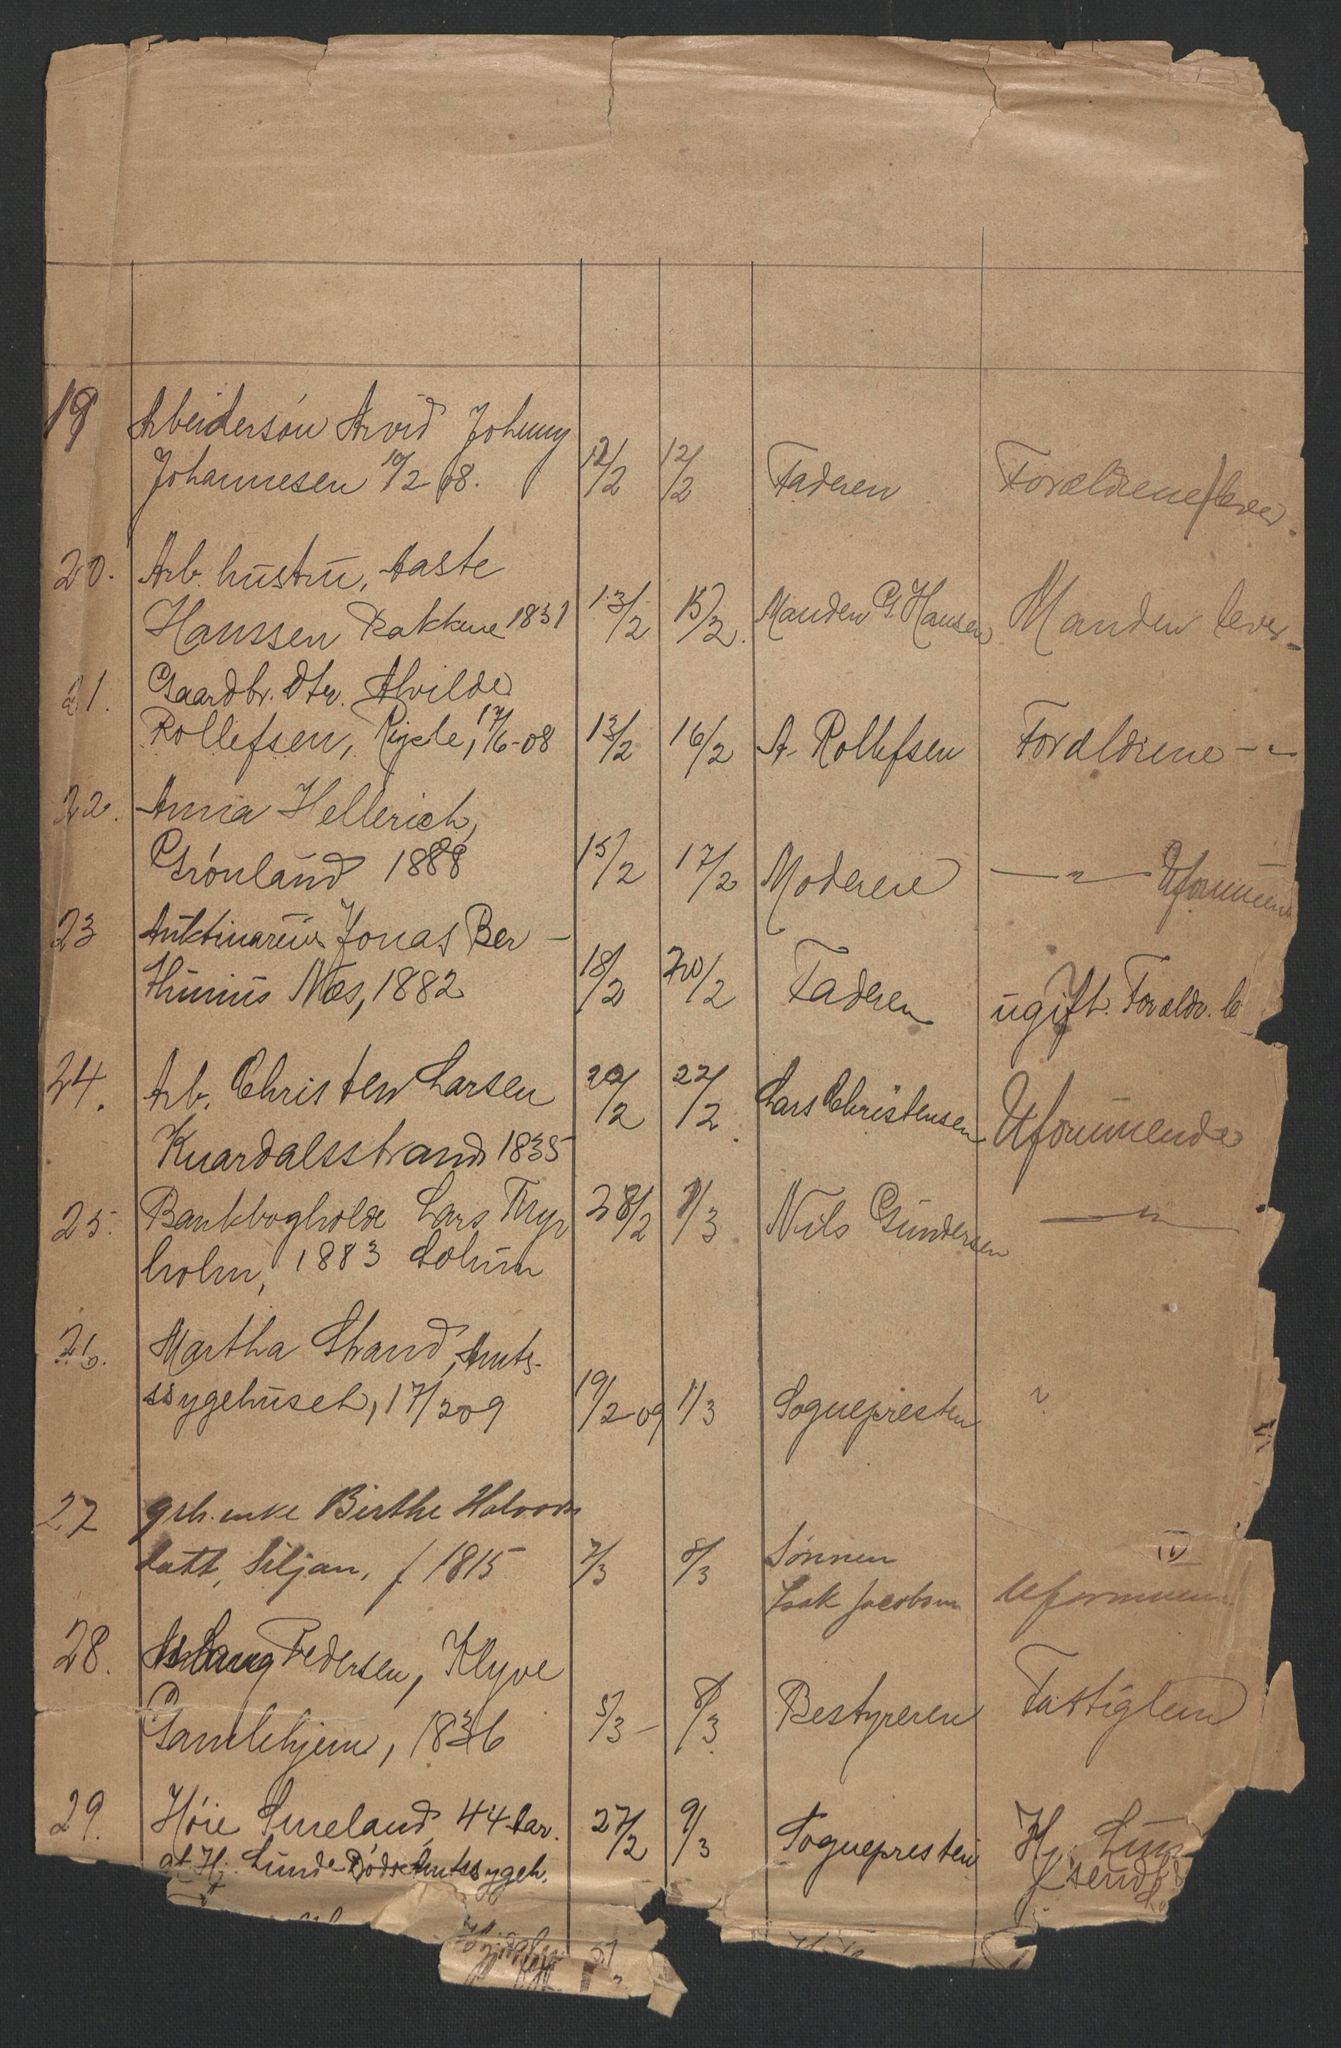 19 Arbeidersøn Arvid Johnny
Johannesen 10/2 08. 12/2 12/2 Faderen Forældrene lever.
20. Arb. hustru, Aaste
Hanssen Rakkene 1831 13/2 15/2. Manden G. Hansen Manden lever
21. Gaardbr. Dtr. Alvilde
Rollefsen, 17/6-08 13/2 16/2 A. Rollefsen Forældrene — " —
22. Anna Hellerich,
Grønland 1888 15/2 17/2 Moderen — " — Uformuende
23 Jonas Ber-
thinius Næs, 1882 18/2 20/2 Faderen ugift. Forældr. le
24. Arb. Christen Larsen
Knardalsstrand 1835 20/2 22/2. Lars Christensen Uformuende
25. Bankbogholder Lars Myr
holm, 1883 Solum 28/2 1/3 Nils Gundersen — " —
26. Martha Strand, Amts-
sygehuset, 17/2 09 19/2-09 1/3 Sognepresten "
27 grb. enke Birthe Halvors
datt, Siljan, f 1815 7/3 8/3 Sønnen
Isak Jacobsen Uformuen
28. Aslaug Pedersen, Klyve
Gamlehjem, 1836 5/3 – 8/3 Bestyreren Fattiglem
29. Høie Smeland, 44 Aar. 27/2 9/3 Sognepresten Hj. Lun
at Hj. Lunde Døds Amtssygeh.